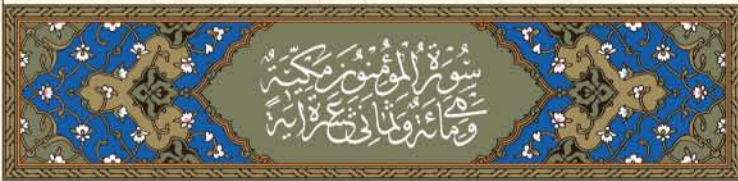 سُورَةُ الْمُؤْمِنُونَ مَكِّيَّةٌ
وَهِيَ مِائَةٌ وَثَمَانِيَ عَشْرَةَ اٰيَةً